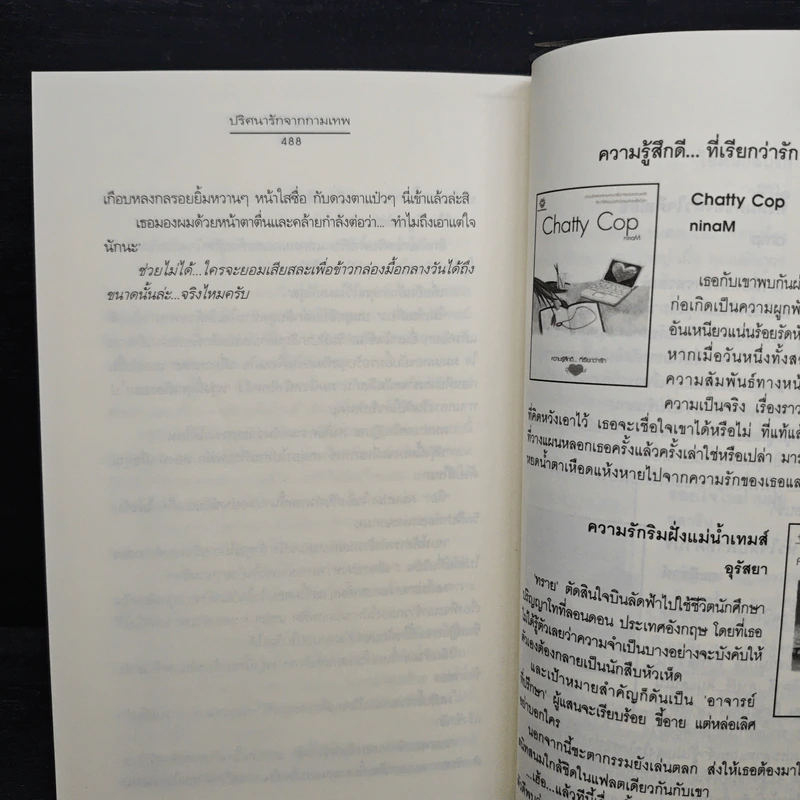 ปริศนารักจากกามเทพ
488
เกือบหลงกลรอยยิ้มหวานๆ หน้าใสซื่อ กับดวงตาแป๋วๆ นี่เข้าแล้วล่ะสิ
เธอมองผมด้วยหน้าตาตื่นและคล้ายกำลังต่อว่า... 'ทำไมถึงเอาแต่ใจ
นักนะ'
ช่วยไม่ได้...ใครจะยอมเสียสละเพื่อข้าวกล่องมื้อกลางวันได้ถึง
ขนาดนั้นล่ะ...จริงไหมครับ
ความรู้สึกดี... ที่เรียกว่ารัก
Chatty Cop
ninaM
Chatty Cop
ninaM
ความรู้สึกดี... ที่เรียกว่ารัก
เธอกับเขาพบกันผ่
ก่อเกิดเป็นความผูกพั
อันเหนียวแน่นร้อยรัดหั
หากเมื่อวันหนึ่งทั้งส
ความสัมพันธ์ทางหน้
ความเป็นจริง เรื่องรา
ที่คิดหวังเอาไว้ เธอจะเชื่อใจเขาได้หรือไม่ ที่แท้แล้
ที่วางแผนหลอกเธอครั้งแล้วครั้งเล่าใช่หรือเปล่า มาร
หยดน้ำตาเหือดแห้งหายไปจากความรักของเธอแล
ความรักริมฝั่งแม่น้ำเทมส์
อุรัสยา
'ทราย' ตัดสินใจบินลัดฟ้าไปใช้ชีวิตนักศึกษา
ปริญญาโทที่ลอนดอน ประเทศอังกฤษ โดยที่เธอ
ไม่ได้รู้ตัวเลยว่าความจำเป็นบางอย่างจะบังคับให้
ตัวเองต้องกลายเป็นนักสืบหัวเห็ด
และเป้าหมายสำคัญก็ดันเป็น 'อาจารย์
ที่ปรึกษา' ผู้แสนจะเรียบร้อย ขี้อาย แต่หล่อเลิศ
อย่าบอกใคร
นอกจากนี้ชะตากรรมยังเล่นตลก ส่งให้เธอต้องมาใ
สนิทสนมใกล้ชิดในแฟลตเดียวกันกับเขา
...เฮ้อ...แล้วทีนี้